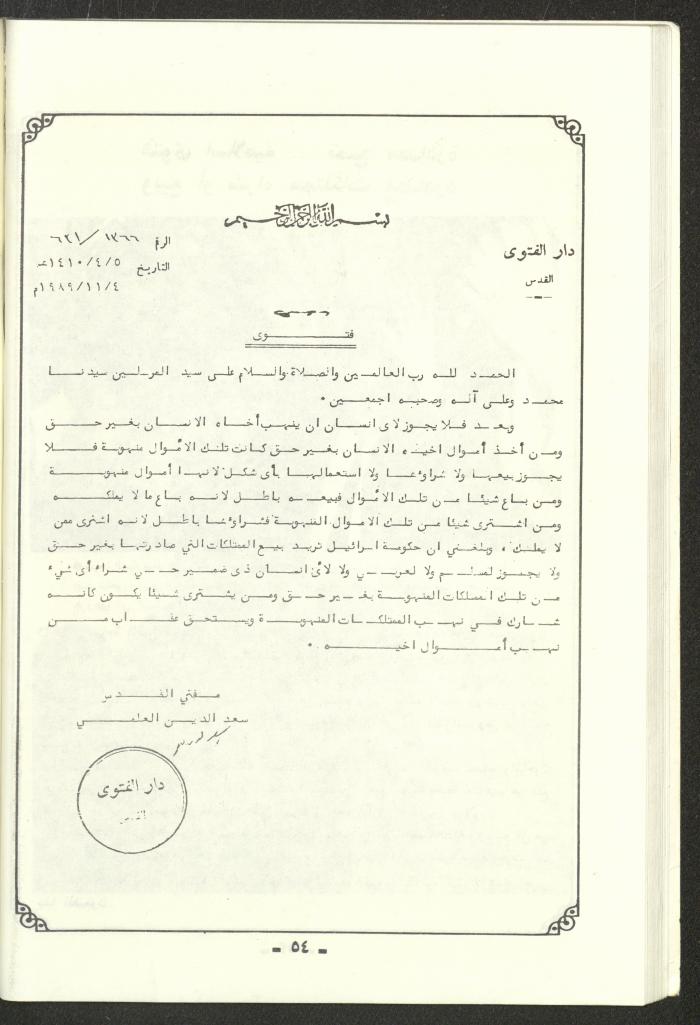 بسم الله الرحمن الرحيم
دار الفتوى
القدس
الرقم ١٣٦٦/٦٢١
التاريخ ١٤١٠/٤/٥هـ
١٩٨٩/١١/٤م
فتوى
الحمد لله رب العالمين والصلاة والسلام على سيد المرسلين سيدنا
محمد وعلى آله وصحبه اجمعين .
وبعد فلا يجوز لاى انسان ان ينهب أخاه الانسان بغير حق
ومن أخذ أموال اخيه الانسان بغير حق كانت تلك الأموال منهوبة فلا
يجوز بيعها ولا شراوءها ولا استعمالها بأى شكل لانها أموال منهوبة
ومن باع شيئا من تلك الأموال فبيعه باطل لانه باع ما لا يملكه
ومن اشترى شيئا من تلك الاموال المنهوبة فشراوءها باطل لانه اشترى ممن
لا يملك ، وبلغني ان حكومة اسرائيل تريد بيع الممتلكات التي صادرتها بغير حق
ولا يجوز لمسلم ولا لعربي ولا لأى انسان ذى ضمير حي شراء أى شيء
من تلك الممتلكات المنهوبة بغير حق ومن يشترى شيئا يكون كانه
شارك في نهب الممتلكات المنهوبة ويستحق عذاب من
نهب أموال اخيه .
مفتي القدس
سعد الدين العلمي
دار الفتوى
القدس
- ٥٤ -